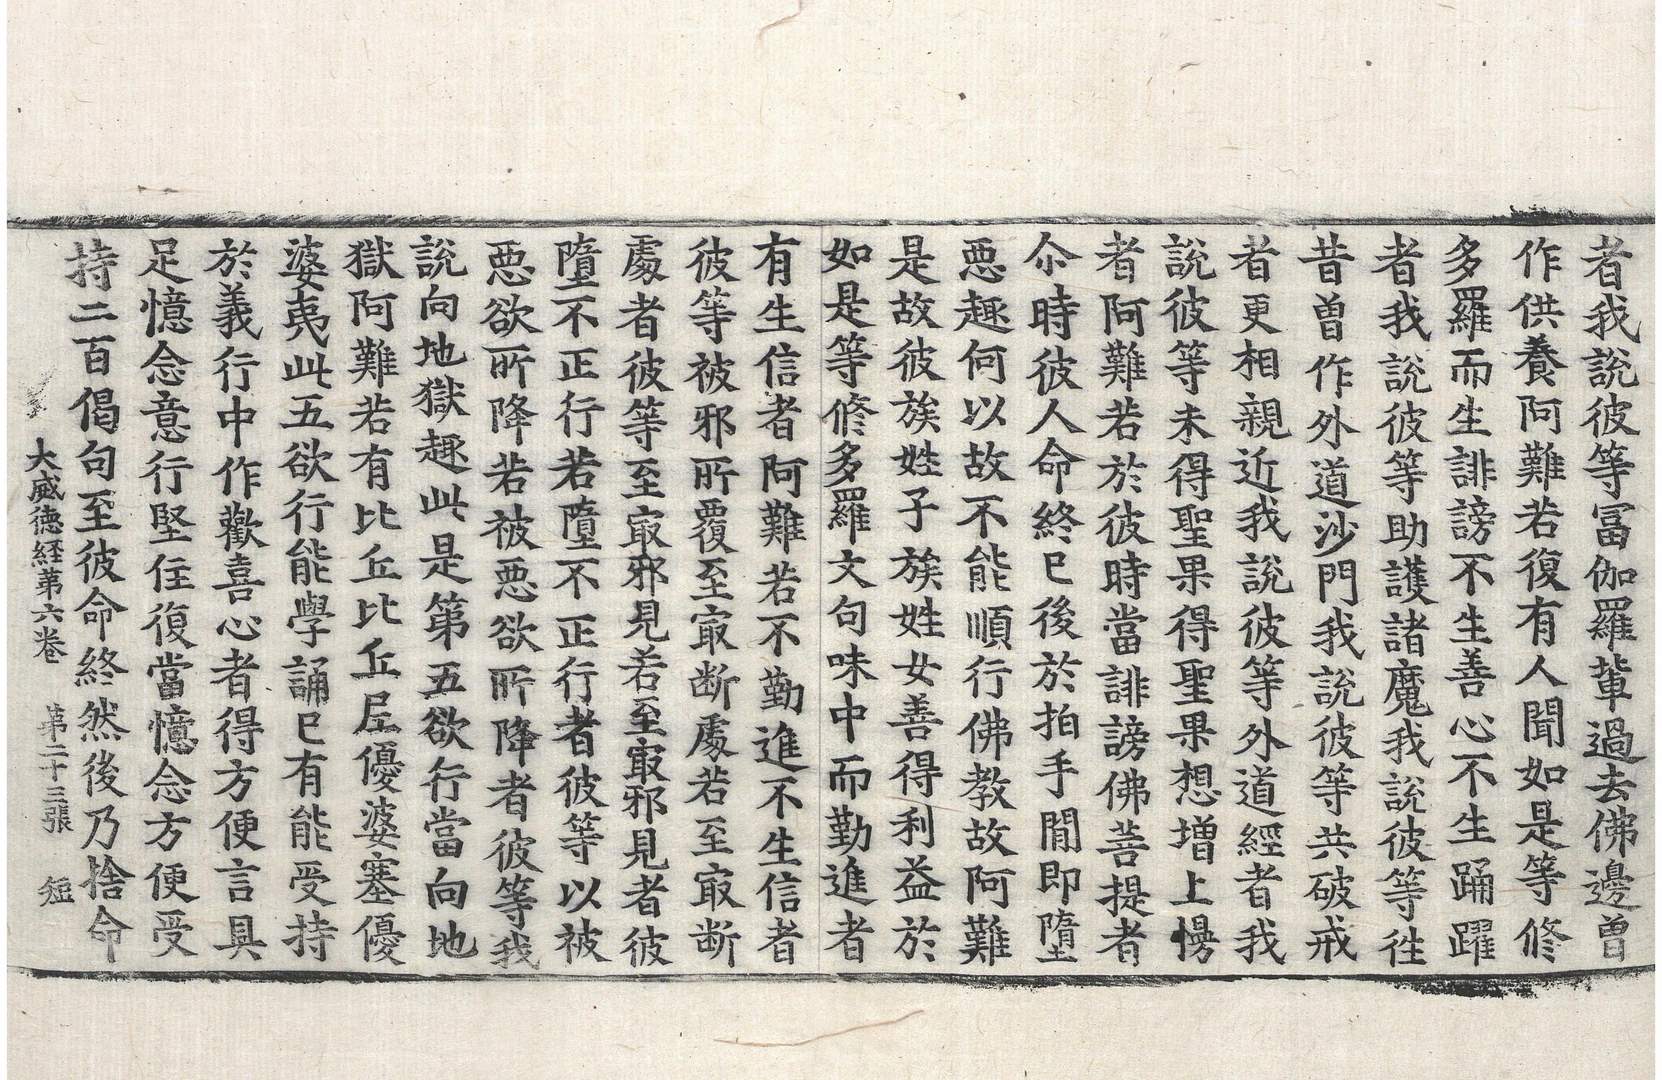 者我說彼等冨伽羅輩過去佛邊曽
作供養阿難若復有人聞如是等修
多羅而生誹謗不生善心不生踊躍
者我說彼等助護諸魔我說彼等徃
昔曽作外道沙門我說彼等共破戒
者更相親近我說彼等外道經者我
說彼等未得聖果得聖果想增上慢
者阿難若於彼時當誹謗佛菩提者
尒時彼人命終已後於拍手閒即墮
惡趣何以故不能順行佛教故阿難
是故彼族姓子族姓女善得利益於
如是等修多羅文句味中而勤進者
有生信者阿難若不勤進不生信者
彼等被邪所覆至㝡断處若至㝡断
處者彼等至㝡邪見若至㝡邪見者彼
墮不正行若墮不正行者彼等以被
惡欲所降若被惡欲所降者彼等我
說向地獄趣此是第五欲行當向地
獄阿難若有比丘比丘尼優婆塞優
婆夷此五欲行能學誦已有能受持
於義行中作歡喜心者得方便言具
足憶念意行堅住復當憶念方便受
持二百偈句至彼命終然後乃捨命
大威德経第六巻 第二十三張 短